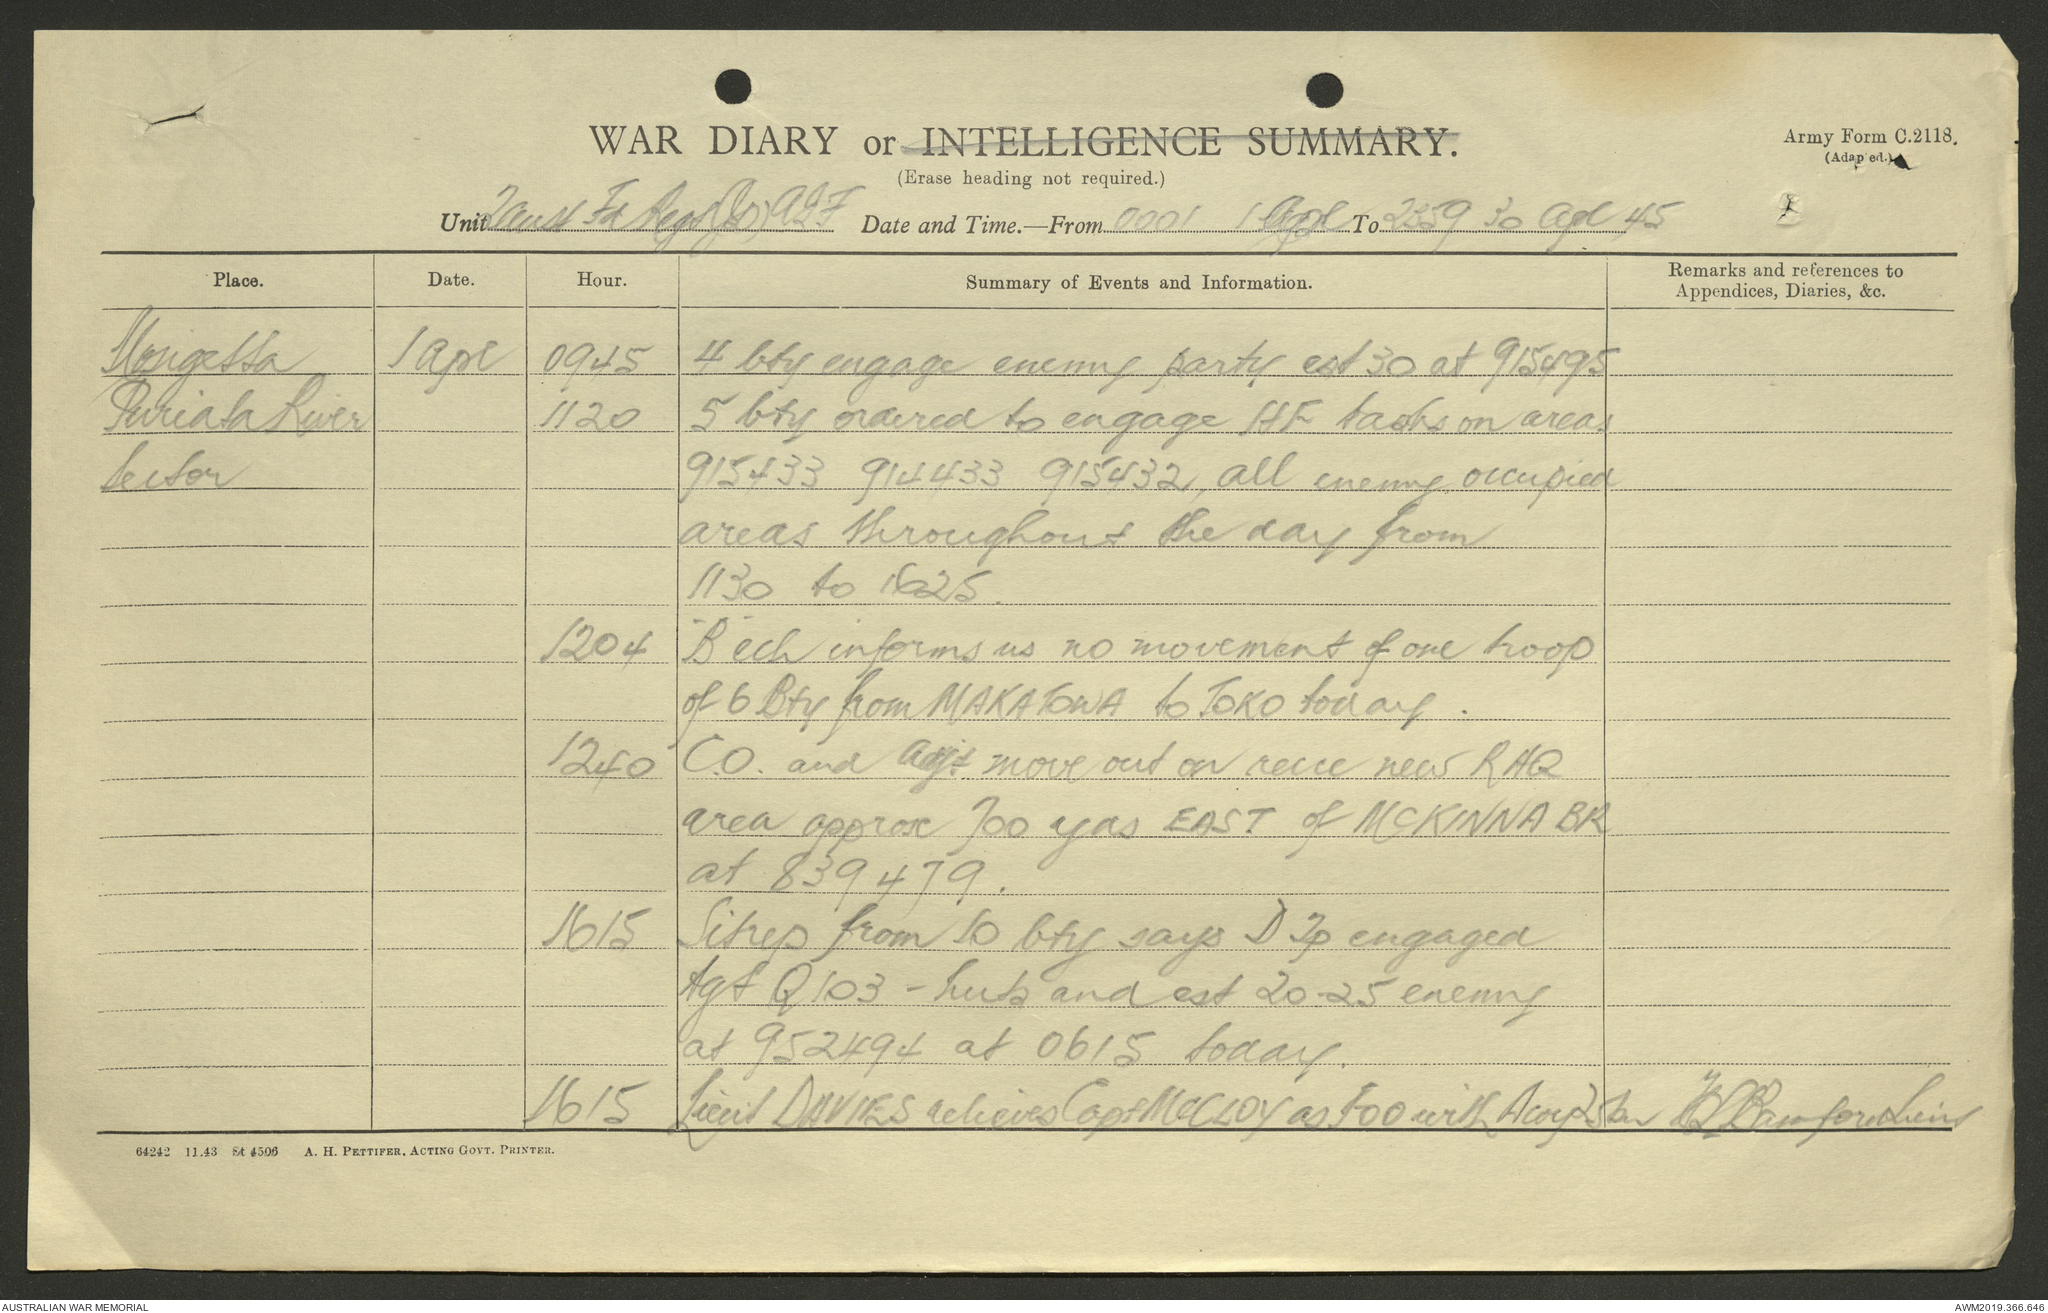 WAR DIARY or INTELLIGENCE SUMMARY.
Army Form C.2118.
(Adapted.)
(Erase heading not required.)
Unit 2 Aust Fd Regt (Jo) AIF Date and Time.—From 0001 1 Apl To 2359 30 Apl 45
Place. Date. Hour. Summary of Events and Information. Remarks and references to Appendices, Diaries, &c.
Mosigetta 1 Apl 0945 4 bty engage enemy party est 30 at 915495
Puriata River 1120 5 bty ordered to engage HF tasks on areas
Sector 915433 914433 915432, all enemy occupied
areas throughout the day from
1130 to 1625.
1204 "B" ech informs us no movement of one troop
of 6 Bty from MAKATOWA to TOKO today.
1240 C.O. and Adjt move out on recce new RHQ
area approx 700 yds EAST of MCKINNA BR
at 839479.
1615 Sitrep from 10 bty says D Tp engaged
tgt Q103 - huts and est 20-25 enemy
at 952494 at 0615 today.
1615 Lieut DAVIES relieves Capt McCLOY as FOO with A coy 25 Bn
64242 11.43 St 4506 A. H. PETTIFER, ACTING GOVT. PRINTER.
AUSTRALIAN WAR MEMORIAL
AWM2019.366.646